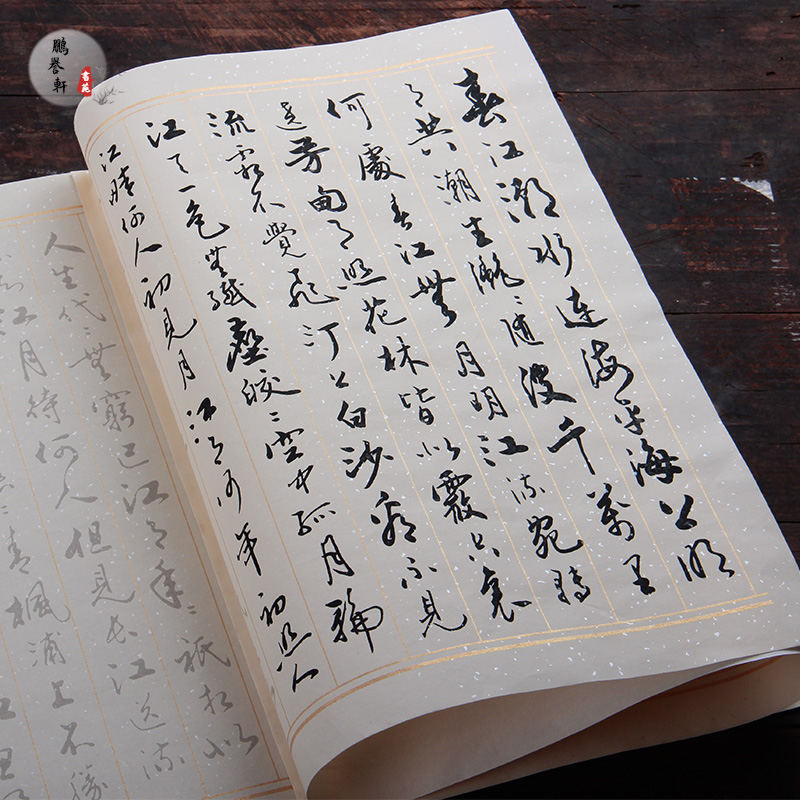 鵬譽軒
書苑
春江潮水連海平海上明
月共潮生灩〻隨波千萬里
何處春江無月明江流宛轉
遶芳甸月照花林皆似霰空裏
流霜不覺飛汀上白沙看不見
江天一色無纖塵皎〻空中孤月輪
江畔何人初見月江月何年初照人
人生代〻無窮已江月年〻祇相似
江月待何人但見長江送流
〻青楓浦上不勝